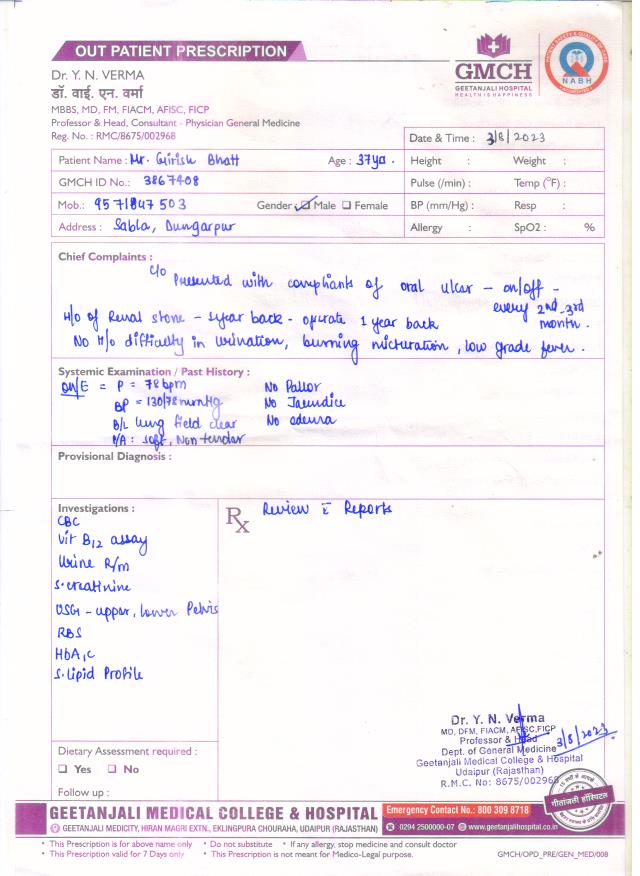 OUT PATIENT PRESCRIPTION
GMCH
GEETANJALI HOSPITAL
HEALTH IS HAPPINESS
NABH
Dr. Y. N. VERMA
डॉ. वाई. एन. वर्मा
MBBS, MD, FM, FIACM, AFISC, FICP
Professor & Head, Consultant - Physician General Medicine
Reg. No. : RMC/8675/002968
Date & Time : 3/8/2023
Patient Name : Mr. Girish Bhatt Age : 37yo. Height : Weight :
GMCH ID No.: 3867408 Pulse (/min) : Temp (°F) :
Mob.: 9571847503 Gender ☑ Male ☐ Female BP (mm/Hg) : Resp :
Address : Sabla, Dungarpur Allergy : SpO2 : %
Chief Complaints :
C/o Presented with compliants of oral ulcer - on/off - every 2nd-3rd month.
H/o of Renal stone - 1year back - operate 1 year back
No H/o difficulty in urination, burning micturation, low grade fever.
Systemic Examination / Past History :
O/E = P = 78 bpm No Pallor
BP = 130/78 mmHg No Jaundice
B/L lung field clear No edema
P/A : soft, Non tender
Provisional Diagnosis :
Investigations :
CBC
Vit B12 assay
Urine R/m
S. creatinine
USG - upper, lower Pelvis
RBS
HbA1c
S. lipid Profile
Rx Review c̄ Reports
Dr. Y. N. Verma
MD, DFM, FIACM, AFISC, FICP
Professor & Head
Dept. of General Medicine
Geetanjali Medical College & Hospital
Udaipur (Rajasthan)
R.M.C. No: 8675/002968
3/8/2023
Dietary Assessment required :
☐ Yes ☐ No
Follow up :
गीतांजली हॉस्पिटल
GEETANJALI MEDICAL COLLEGE & HOSPITAL
GEETANJALI MEDICITY, HIRAN MAGRI EXTN., EKLINGPURA CHOURAHA, UDAIPUR (RAJASTHAN)
Emergency Contact No.: 800 309 8718
0294 2500000-07 www.geetanjalihospital.co.in
* This Prescription is for above name only * Do not substitute * If any allergy, stop medicine and consult doctor
* This Prescription valid for 7 Days only * This Prescription is not meant for Medico-Legal purpose.
GMCH/OPD_PRE/GEN_MED/008